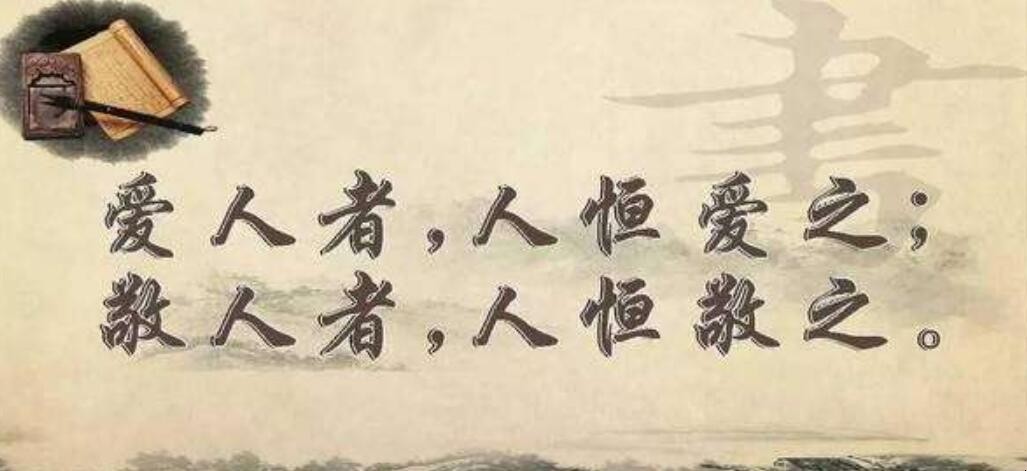 書
爱人者，人恒爱之；
敬人者，人恒敬之。